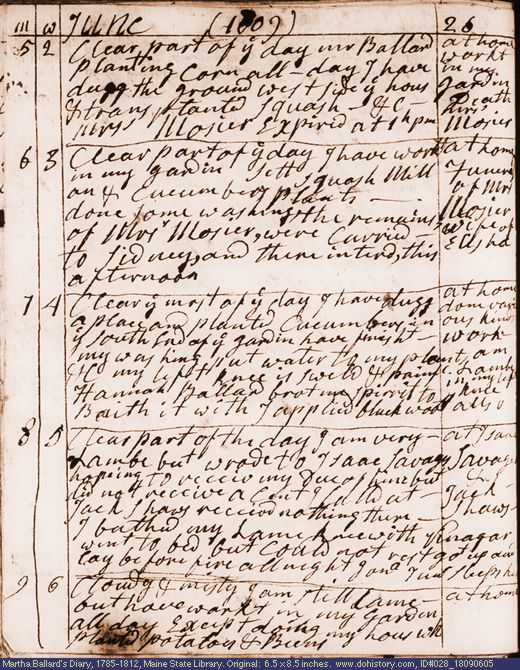 m w June (1809) 26
5 2 Clear part of ye day mr Ballard at home
planting Corn all-day I have workt
dugg the ground west side ye hous in my
& transplanted squash &C- gardin
Mrs Mosier Expired at 1 h pm Death Mrs Mosier
6 3 Clear part of ye day I have workt at home
in my gardin sett squash Mill Funeral
on & Cucumber plants — of Mrs
done some washing the remains Mosier
of Mrs Mosier, were Carried — wife of
to Sidney and there interd, this Elisha
afternoon
7 4 Clear ye most of ye day I have dugg at home
a place and planted Cucumbers, in done vari
ye south End of ye gardin have finisht ous kinds
my washing put water to my plants work
my left knee is sweld & pain I am lame
Hannah Ballard brot me spirit to in my left
Baith it with I applied black wool knee
allso
8 5 Clear part of the day I am very — at Isaac
Lambe but wrode to Isaac Savages Savages
hoping to receiv my Dues from him but
did not receive a Cent I Calld at — Jack
Jack Shaws received nothing there — Shaws-
I bathed my Lame knee with vinagar
went to bed but Could not rest got up and
lay before fire all night
9 6 Clowdy & misty I am still Lame — at home
but have workt in my gardin
all day Except doing my hous wk
planted potatoes & Beens
Martha Ballard's Diary, 1785-1812, Maine State Library. Original: 6.5 x 8.5 inches. www.dohistory.com, ID#028_18090605